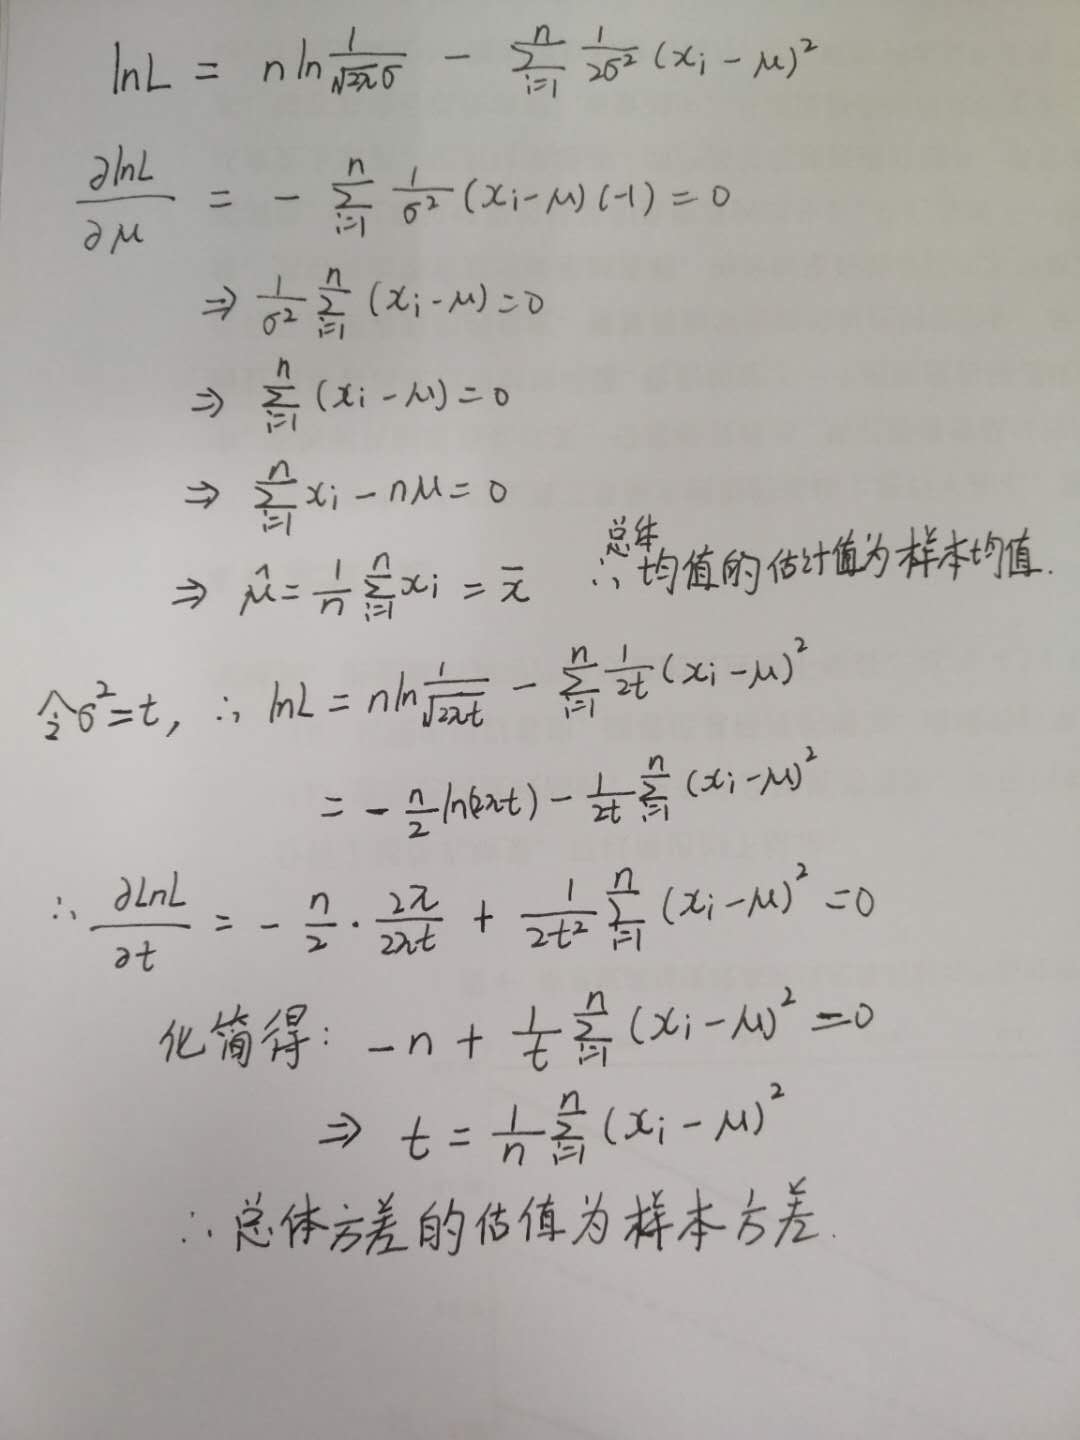 lnL = n ln 1/√2πσ - Σ_{i=1}^{n} 1/2σ² (x_i - μ)²
∂lnL/∂μ = - Σ_{i=1}^{n} 1/σ² (x_i - μ) (-1) = 0
⇒ 1/σ² Σ_{i=1}^{n} (x_i - μ) = 0
⇒ Σ_{i=1}^{n} (x_i - μ) = 0
⇒ Σ_{i=1}^{n} x_i - nμ = 0
⇒ μ̂ = 1/n Σ_{i=1}^{n} x_i = x̄
∴ 总体均值的估计值为样本均值.
令σ² = t, ∴ lnL = n ln 1/√2πt - Σ_{i=1}^{n} 1/2t (x_i - μ)²
= - n/2 ln(2πt) - 1/2t Σ_{i=1}^{n} (x_i - μ)²
∴ ∂LnL/∂t = - n/2 · 2π/2πt + 1/2t² Σ_{i=1}^{n} (x_i - μ)² = 0
化简得: -n + 1/t Σ_{i=1}^{n} (x_i - μ)² = 0
⇒ t = 1/n Σ_{i=1}^{n} (x_i - μ)²
∴ 总体方差的估值为样本方差.